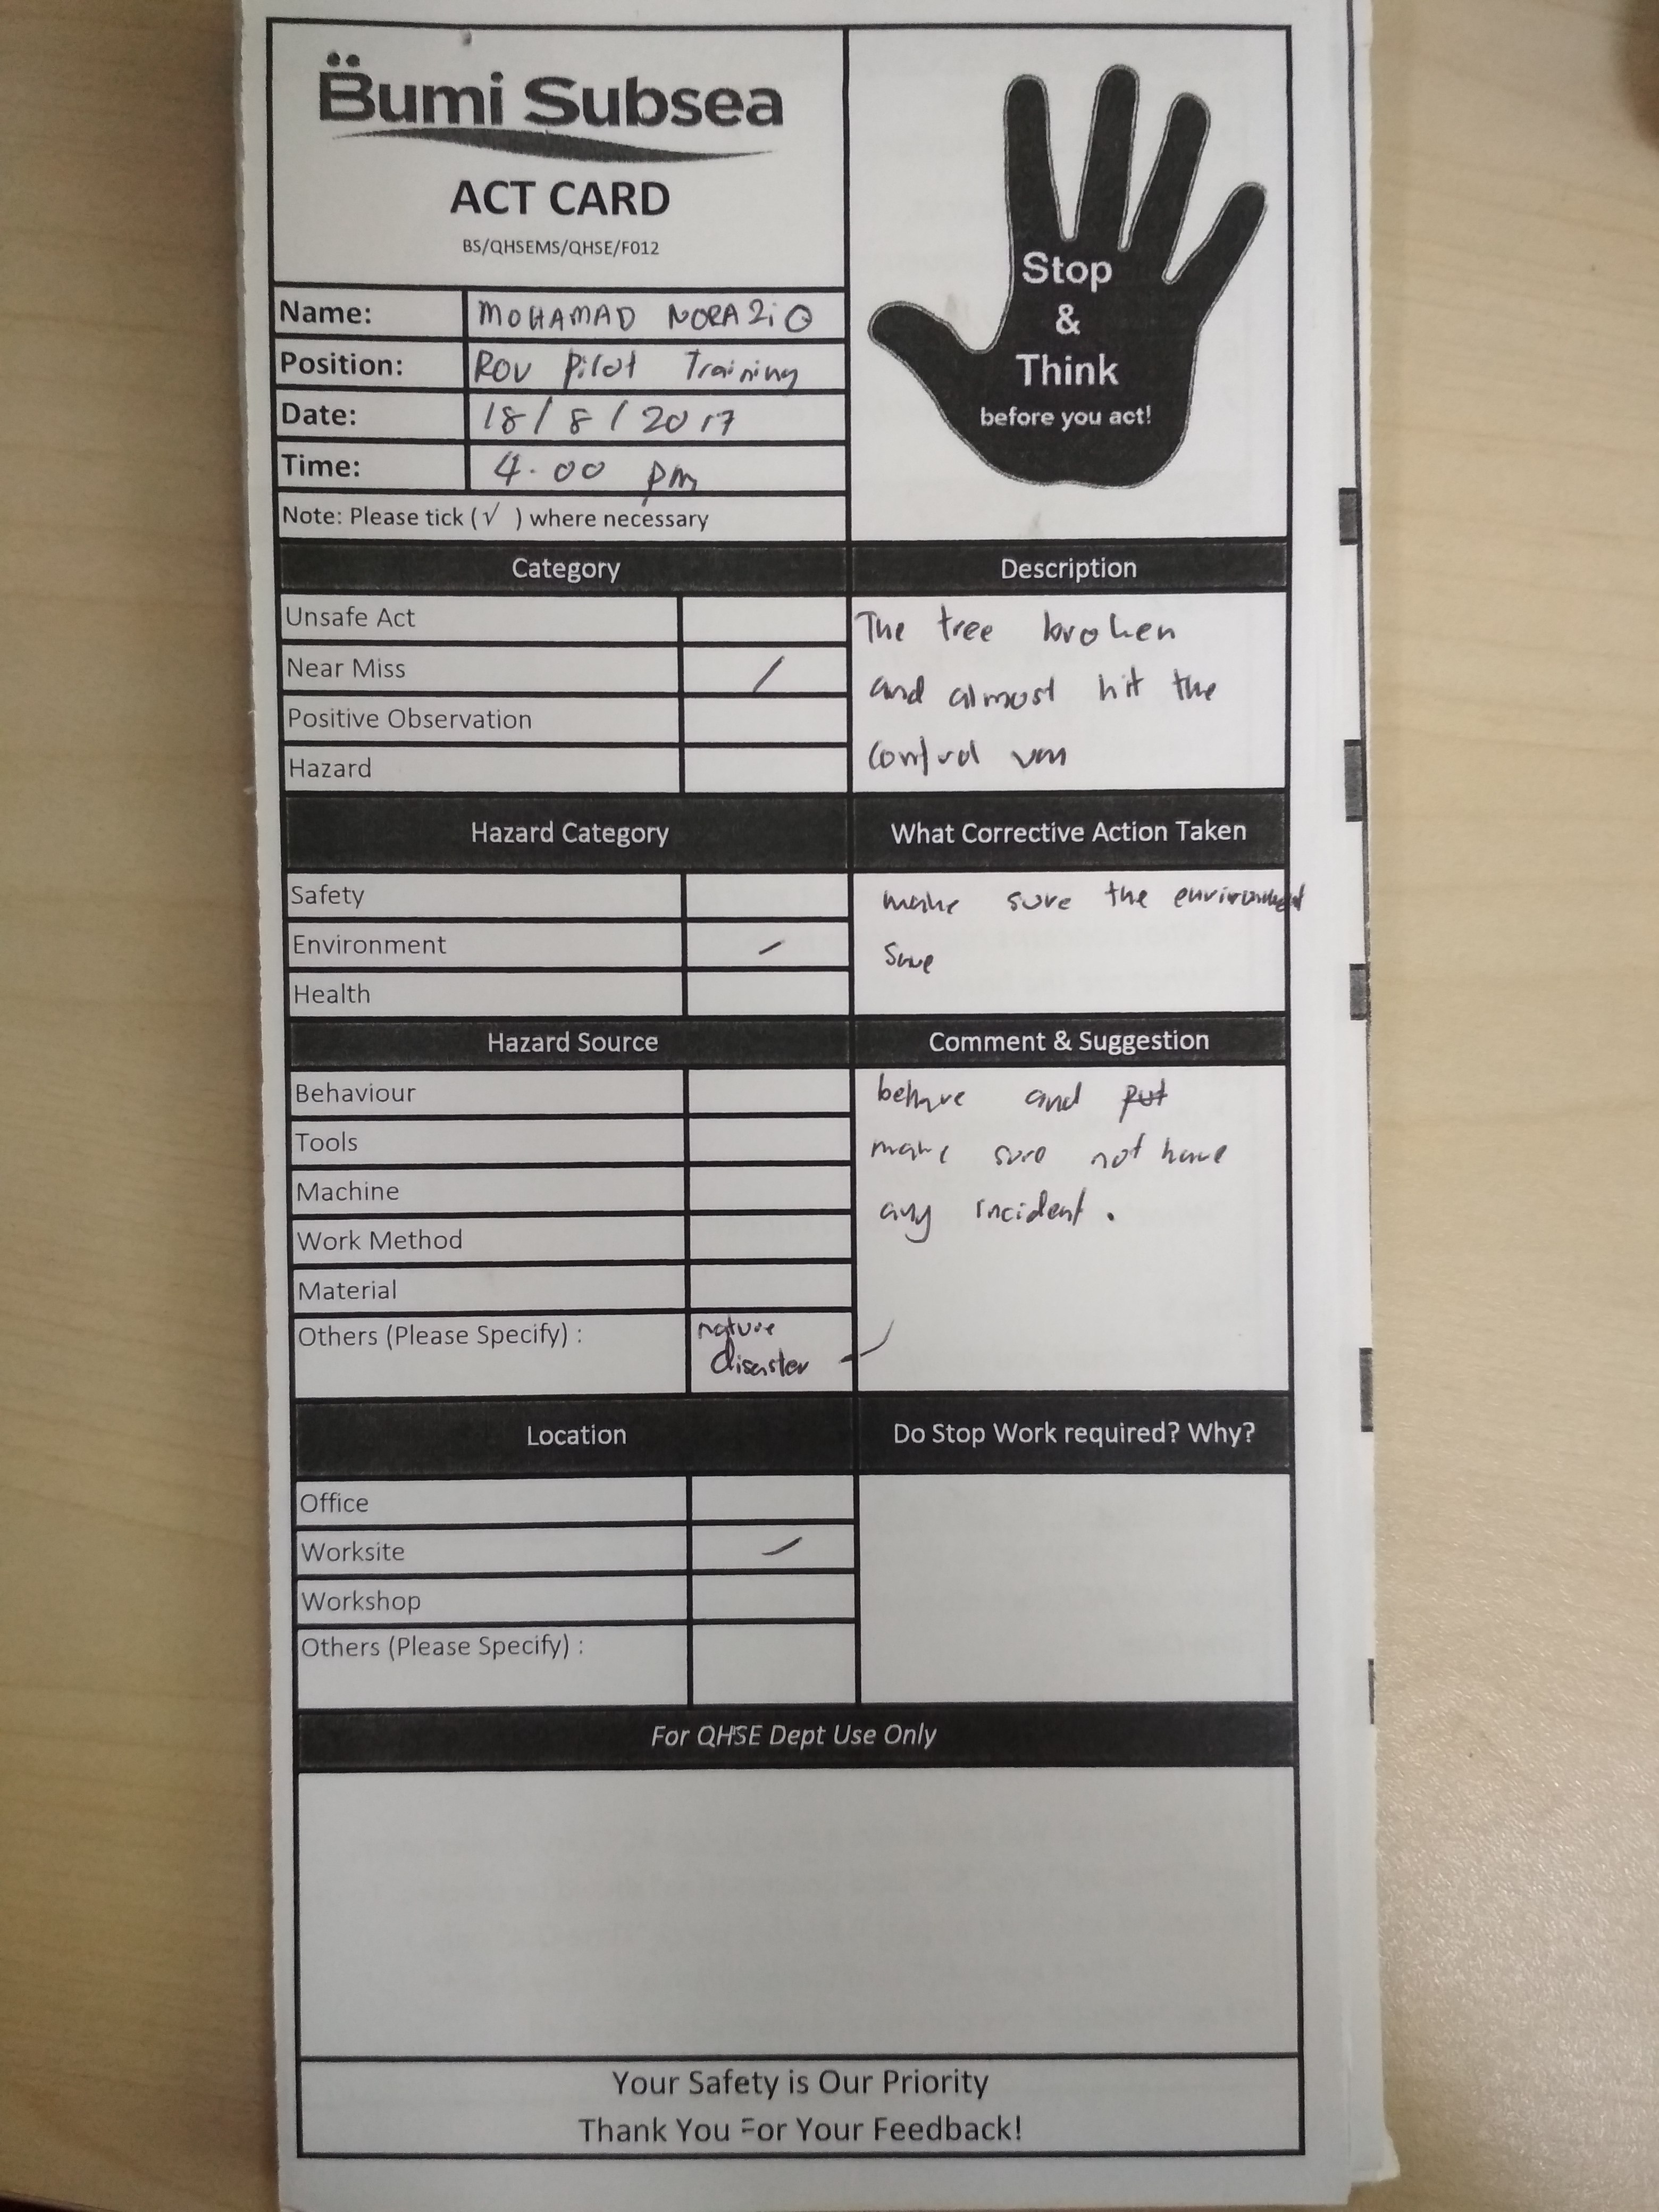 Bumi Subsea
ACT CARD
BS/QHSEMS/QHSE/F012
Stop
&
Think
before you act!
Name: MOHAMAD NORAZiQ
Position: ROV Pilot Training
Date: 18/8/2017
Time: 4.00 pm
Note: Please tick (√ ) where necessary
Category
Unsafe Act
Near Miss /
Positive Observation
Hazard
Description
The tree broken
and almost hit the
control van
Hazard Category
Safety
Environment /
Health
What Corrective Action Taken
make sure the environment
Hazard Source
Behaviour
Tools
Machine
Work Method
Material
Others (Please Specify) : nature
disaster
Comment & Suggestion
behave and put
make sure not have
any incident.
Location
Office
Worksite /
Workshop
Others (Please Specify) :
Do Stop Work required? Why?
For QHSE Dept Use Only
Your Safety is Our Priority
Thank You For Your Feedback!